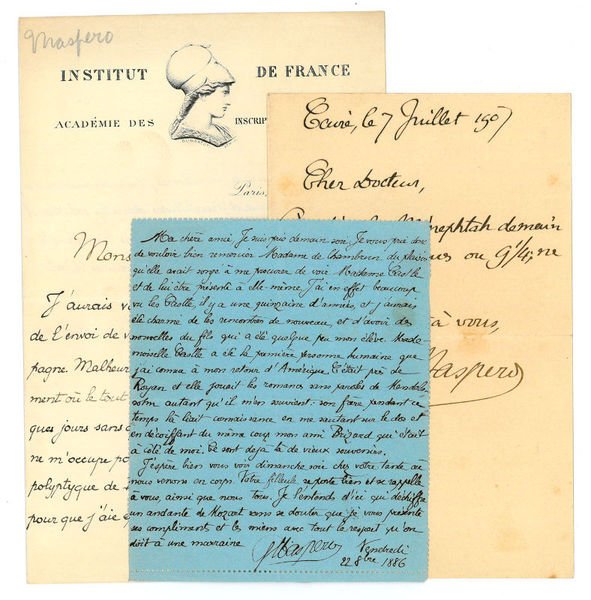 Maspero
INSTITUT DE FRANCE
ACADÉMIE DES INSCRIP
Paris,
Mons
J'aurais v
de l'envoi de v
pagne. Malheur
ment où le tout
ques jours sans
ne m'occupe po
polyptyque de
pour que j'aie
le 7 Juillet 1907
Cher Docteur,
Ménephtah demain
ou 9h 1/4; ne
à vous,
Maspero
Ma chère amie, Je suis pris demain soir. Je vous prie donc
de vouloir bien remercier Madame de Chambrun du plaisir
qu'elle avait songé à me procurer de voir Mademe
et de lui être présenté à elle même. J'ai en effet beaucoup
vu les il y a une quinzaine d'années, et j'aurais
été charmé de les rencontrer de nouveau, et d'avoir des
nouvelles du fils qui a été quelque peu mon élève. Made
moiselle a été la première personne humaine que
j'ai connue à mon retour d'Amérique. C'était près de
Royan et elle jouait les romances sans paroles de
autant qu'il m'en souvient: son frère pendant ce
temps là liait connaissance en me sautant sur le dos et
en décoiffant du même coup mon ami qui était
à côté de moi. Ce sont déjà là de vieux souvenirs.
J'espère bien vous voir dimanche soir chez votre tante où
nous venons en corps. Votre filleule se porte bien et se rappelle
à vous, ainsi que nous tous. Je l'entends d'ici qui déchiffre
un andante de Mozart sans se douter que je vous présente
ses compliments et les miens avec tout le respect qu'on
doit à une marraine
GMaspero Vendredi
22 8bre 1886